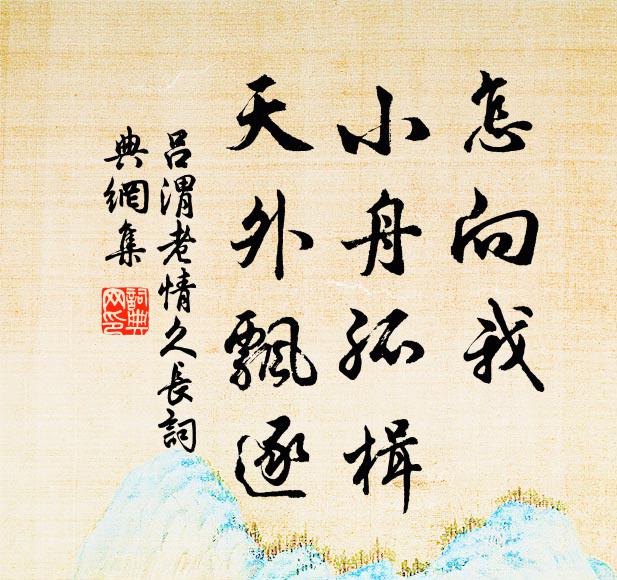 怎向我
小舟孤楫
天外飄逐
呂渭老情久長詞
典網集
詞典
網印